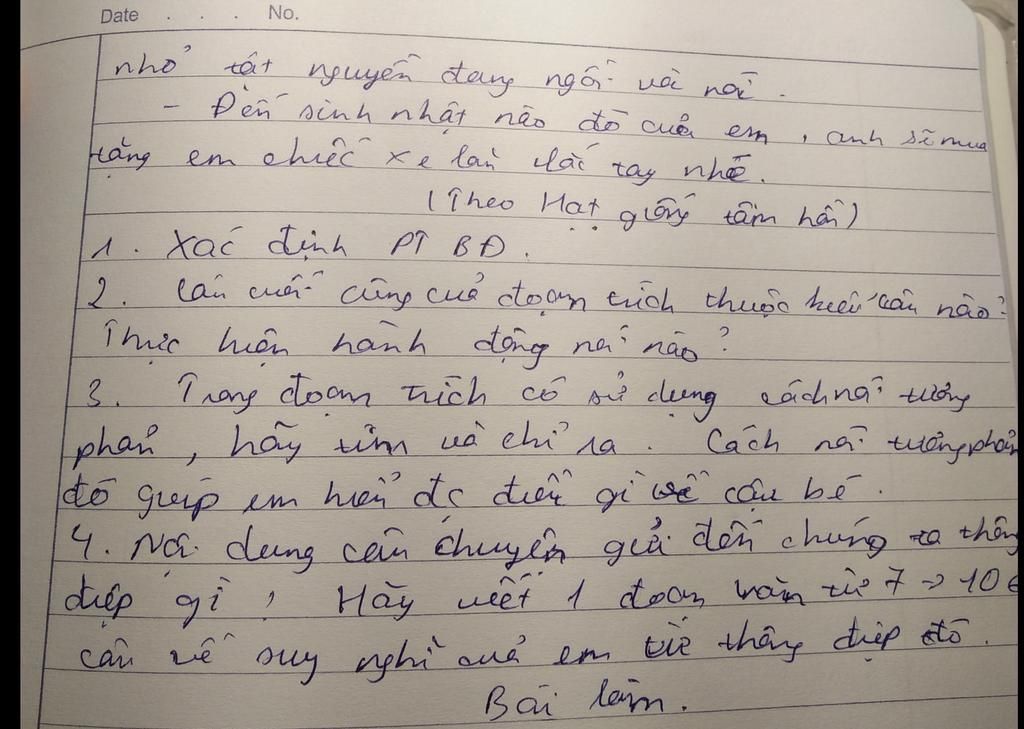 Date . . . No.
nhỏ tật nguyền đang ngồi và nói.
- Đến sinh nhật nào đó của em, anh sẽ mua
tặng em chiếc xe lăn lắc tay nhé.
(Theo Hạt giống tâm hồn)
1. Xác định PT BĐ.
2. Câu cuối cùng của đoạn trích thuộc kiểu câu nào?
Thực hiện hành động nói nào?
3. Trong đoạn trích có sử dụng cách nói tương
phản, hãy tìm và chỉ ra. Cách nói tương phản
đó giúp em hiểu đc điều gì về cậu bé.
4. Nội dung câu chuyện gửi đến chúng ta thông
điệp gì, Hãy viết 1 đoạn văn từ 7 -> 10
câu về suy nghĩ của em từ thông điệp đó.
Bài làm.